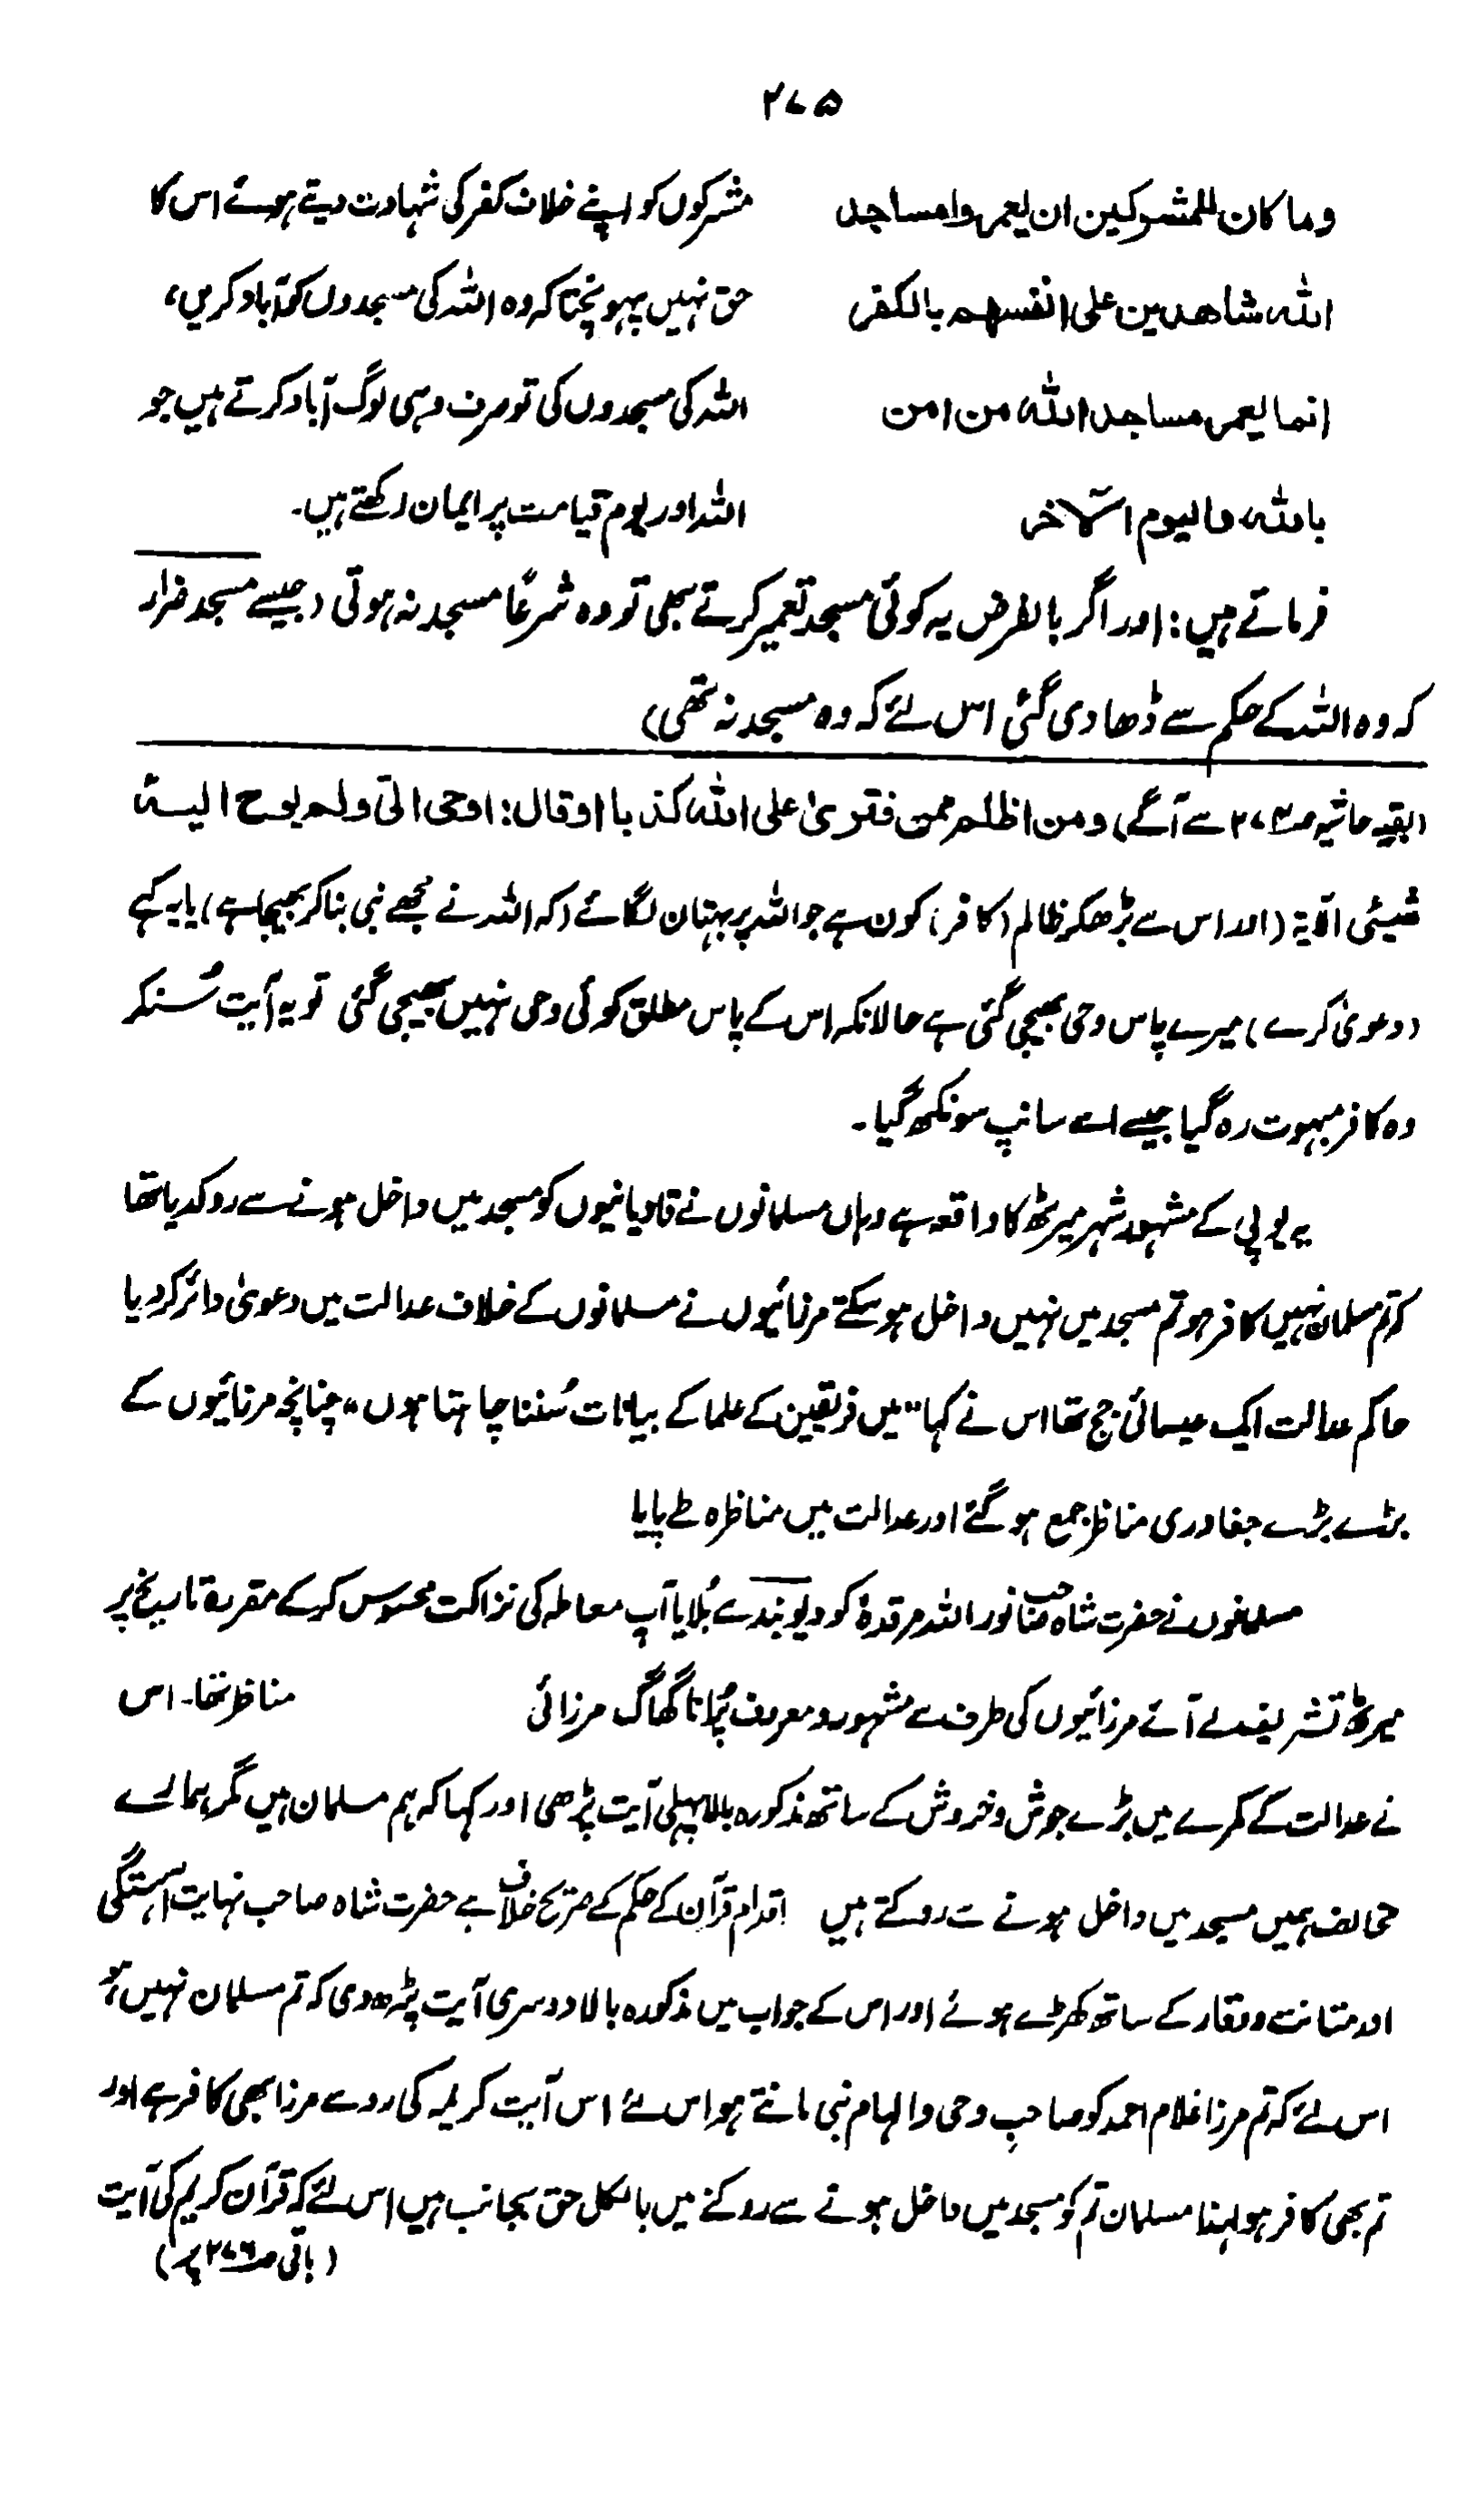 ۲۷۵
وما كان للمشركين ان يعمروا مساجد
مشرکوں کو اپنے خلاف کفر کی شہادت دیتے ہوئے اس کا
الله شاهدين على انفسهم بالكفر
حق نہیں پہونچتا کہ وہ اللہ کی مسجدوں کو آباد کریں،
انما يعمر مساجد الله من امن
اللہ کی مسجدوں کی تو صرف وہی لوگ آباد کرتے ہیں جو
بالله واليوم الآخر
اللہ اور یوم قیامت پر ایمان رکھتے ہیں۔
فرماتے ہیں: اور اگر بالفرض یہ کوئی مسجد تعمیر کرتے بھی تو وہ شرعًا مسجد نہ ہوتی (جیسے مسجد ضرار
کہ وہ اللہ کے حکم سے ڈھا دی گئی اس لئے کہ وہ مسجد نہ تھی)
(بقیہ حاشیہ ص۲۷۴ سے آگے) ومن اظلم ممن فترىٰ على الله كذبا اوقال: اوحى الىّ ولم يوح اليه
شيئى الآية (اور اس سے بڑھکر ظالم (کافر) کون ہے جو اللہ پر بہتان لگائے (کہ اللہ نے مجھے نبی بنا کر بھیجا ہے) یا یہ کہے
(دعویٰ کرے) میرے پاس وحی بھیجی گئی ہے حالانکہ اس کے پاس مطلق کوئی وحی نہیں بھیجی گئی تو یہ آیت سُنکر
وہ کافر مبہوت رہ گیا جیسے اسے سانپ سونگھ گیا۔
یہ یوپی کے مشہور شہر میرٹھ کا واقعہ ہے وہاں مسلمانوں نے قادیانیوں کو مسجد میں داخل ہونے سے روکدیا تھا
کہ تم مسلمان نہیں کافر ہو تم مسجد میں نہیں داخل ہو سکتے مرزائیوں نے مسلمانوں کے خلاف عدالت میں دعویٰ دائر کر دیا
حاکم عدالت ایک عیسائی جج تھا اس نے کہا "میں فریقین کے علما کے بیانات سُننا چاہتا ہوں" چنانچہ مرزائیوں کے
بڑے بڑے جغادری مناظر جمع ہو گئے اور عدالت میں مناظرہ طے پایا
مسلمانوں نے حضرت شاہ صاحب نور اللہ مرقدہٗ کو دیوبند سے بُلایا آپ معاملہ کی نزاکت محسوس کر کے مقررہ تاریخ پر
میرٹھ تشریف لے آئے مرزائیوں کی طرف سے مشہور و معروف پُرانا گھاگ مرزائی مناظر تھا۔ اس
نے عدالت کے کمرے میں بڑے جوش و خروش کے ساتھ مذکورہ بالا پہلی آیت پڑھی اور کہا کہ ہم مسلمان ہیں مگر ہمارے
مخالف ہمیں مسجد میں داخل ہونے سے روکتے ہیں اقدام قرآن کے حکم کے صریح خلاف ہے حضرت شاہ صاحب نہایت آہستگی
اور متانت و وقار کے ساتھ کھڑے ہوئے اور اس کے جواب میں مذکورہ بالا دوسری آیت پڑھ دی کہ تم مسلمان نہیں ہو
اس لئے کہ تم مرزا غلام احمد کو صاحبِ وحی و الہام نبی مانتے ہو اس لئے اس آیت کریمہ کی رو سے مرزا بھی کافر ہے اور
تم بھی کافر ہو لہٰذا مسلمان تم کو مسجد میں داخل ہونے سے روکنے میں بالکل حق بجانب ہیں اس لئے کہ قرآن کریم کی آیت
(باقی ص۲۷۶ پر)